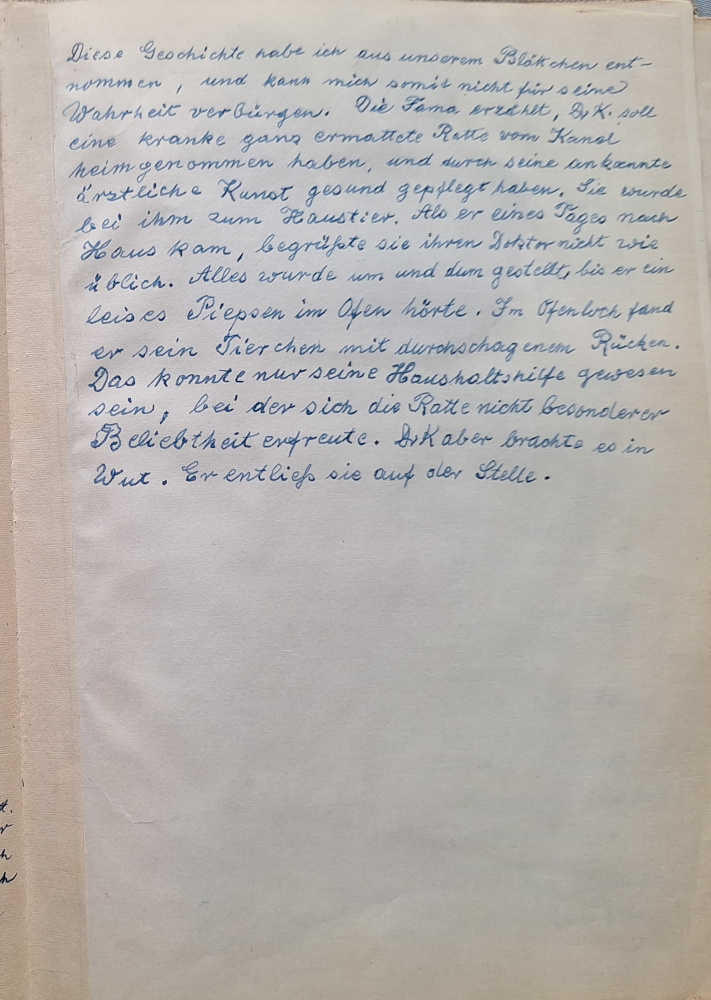 Diese Geschichte habe ich aus unserem Blättchen ent-
nommen, und kann mich somit nicht für seine
Wahrheit verbürgen. Die Fama erzählt, Dr K. soll
eine kranke ganz ermattete Ratte vom Kanal
heimgenommen haben, und durch seine ankannte
ärztliche Kunst gesund gepflegt haben. Sie wurde
bei ihm zum Haustier. Als er eines Tages nach
Haus kam, begrüßte sie ihren Doktor nicht wie
üblich. Alles wurde um und dum gestellt, bis er ein
leises Piepsen im Ofen hörte. Im Ofenloch fand
er sein Tierchen mit durchschagenem Rücken.
Das konnte nur seine Haushaltshilfe gewesen
sein, bei der sich die Ratte nicht besonderer
Beliebtheit erfreute. Dr K aber brachte es in
Wut. Er entließ sie auf der Stelle.